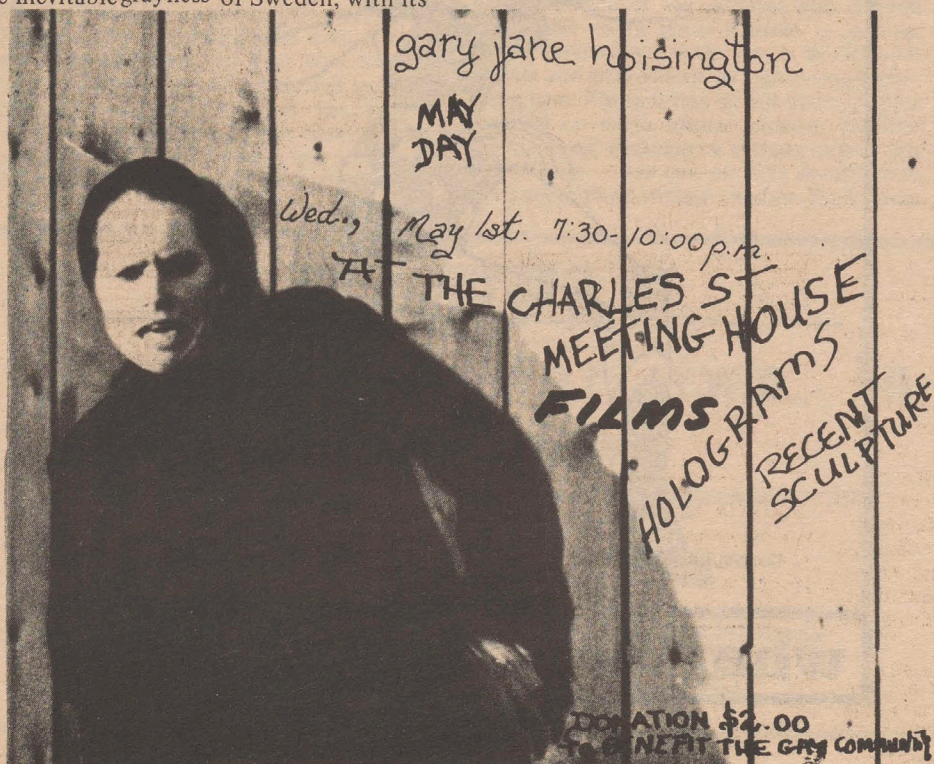 inevitable grayness of Sweden, with its
gary jane hoisington
MAY
DAY
Wed., May 1st. 7:30-10:00 p.m.
AT THE CHARLES ST
MEETING HOUSE
FILMS
HOLOGRAMS
RECENT
SCULPTURE
DONATION $2.00
To BENEFIT THE GAY COMMUNITY